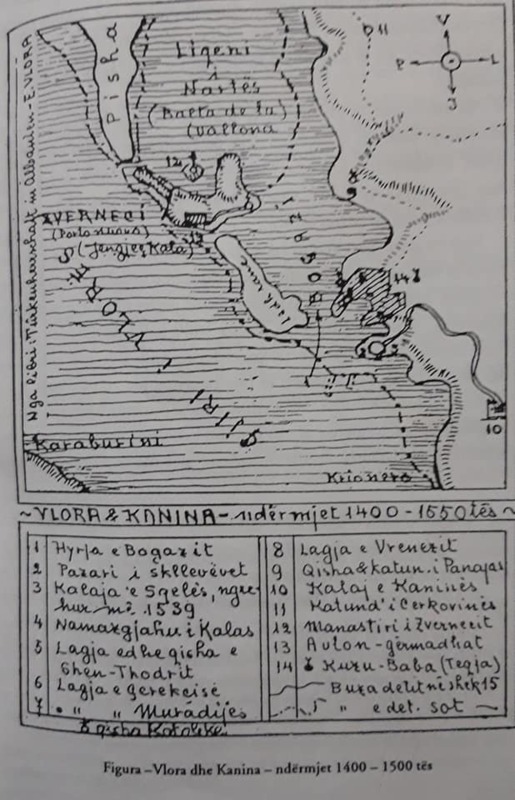 Nga libri Türkenherrschaft in Albanien - E. VLORA
Pisha
Liqeni
i
Nartës
(Balta de la)
(Vallona
11
V
P
L
J
12
ZVERNECI
(Porto nuovo)
(Jengjeç Kala)
13
BOGAZI
14
GJIRI i VLORËS
1
2
10
Karaburuni
Krionero
~VLORA & KANINA - ndërmjet 1400 - 1550 tës ~
1 Hyrja e Bogazit
2 Pazari i skllevëvet
3 Kalaja e Sqelës, ngre-
hur më 1539
4 Namazgjahu i Kalas
5 Lagja edhe qisha e
Shen-Thodrit
6 Lagja e gerekeisë
7 " " Murâdijes
8 qisha Katolike
8 Lagja e Vrenezit
9 Qisha & katun. i Panajas
10 Kalaj e Kaninës
11 Katund' i Cerkovinës
12 Manastiri i Zvernecit
13 Aulon - gërmadhat
14 Kuzu-Baba (Teqja)
Buza detit në shek 15
" e det. sot
Figura – Vlora dhe Kanina – ndërmjet 1400 – 1500 tës